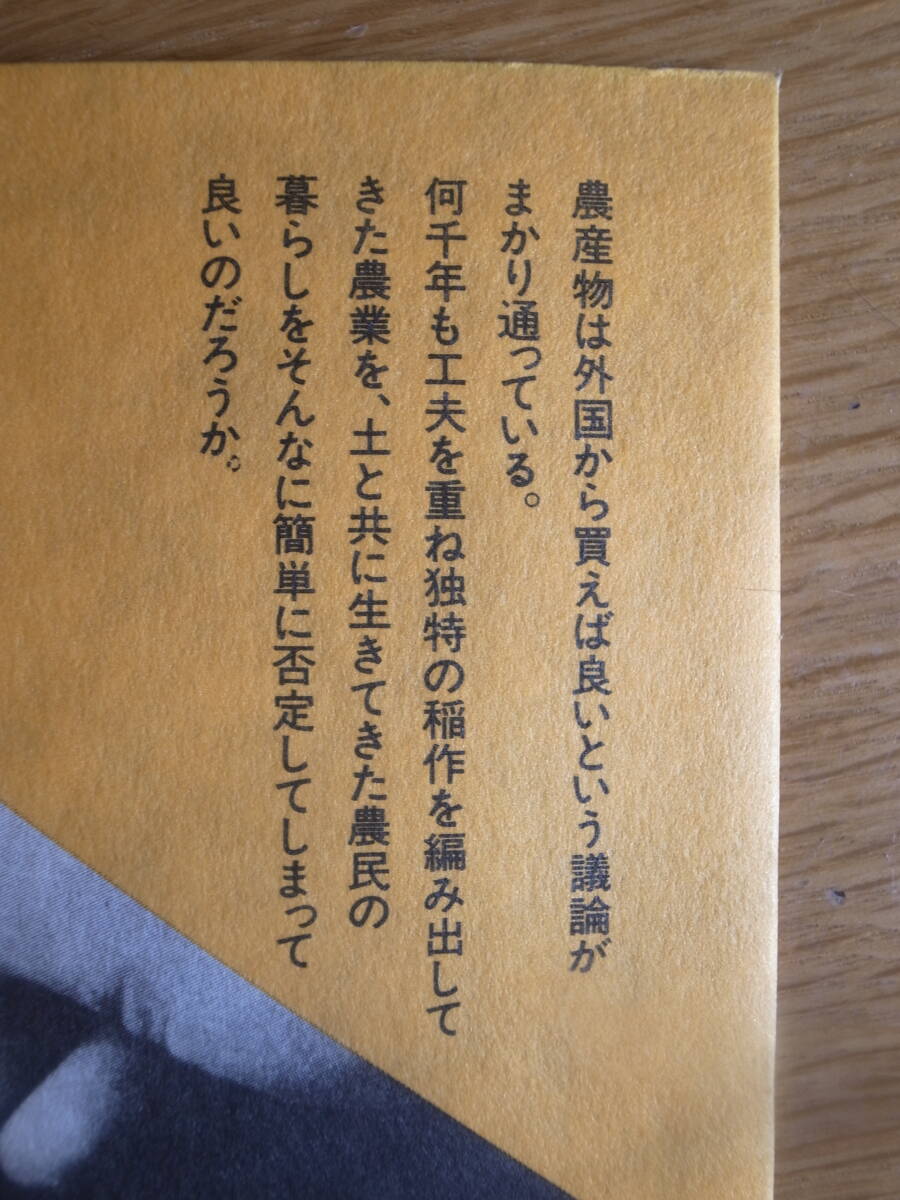 農産物は外国から買えば良いという議論が
まかり通っている。
何千年も工夫を重ね独特の稲作を編み出して
きた農業を、土と共に生きてきた農民の
暮らしをそんなに簡単に否定してしまって
良いのだろうか。